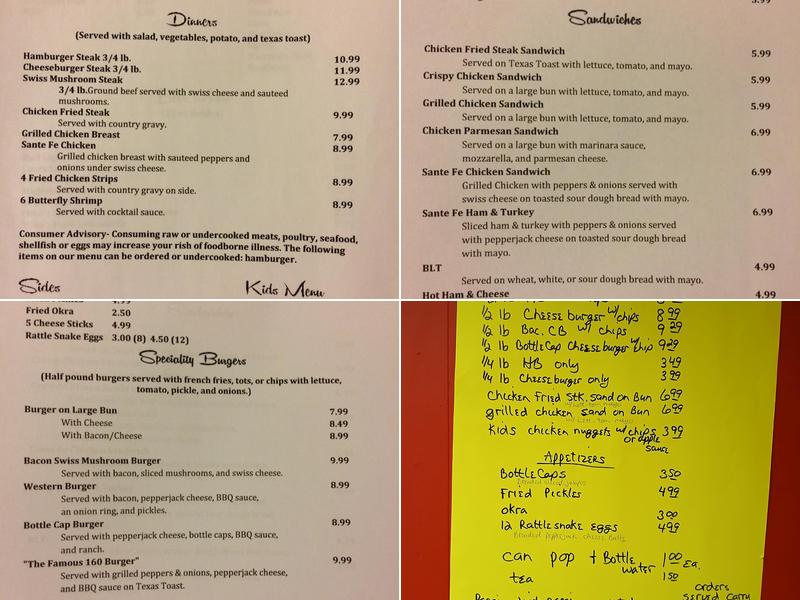 Dinners
(Served with salad, vegetables, potato, and texas toast)
Hamburger Steak 3/4 lb. 10.99
Cheeseburger Steak 3/4 lb. 11.99
Swiss Mushroom Steak 12.99
3/4 lb.Ground beef served with swiss cheese and sauteed
mushrooms.
Chicken Fried Steak 9.99
Served with country gravy.
Grilled Chicken Breast 7.99
Sante Fe Chicken 8.99
Grilled chicken breast with sauteed peppers and
onions under swiss cheese.
4 Fried Chicken Strips 8.99
Served with country gravy on side.
6 Butterfly Shrimp 8.99
Served with cocktail sauce.
Consumer Advisory- Consuming raw or undercooked meats, poultry, seafood,
shellfish or eggs may increase your rish of foodborne illness. The following
items on our menu can be ordered or undercooked: hamburger.
Sides Kids Menu
Sandwiches
Chicken Fried Steak Sandwich 5.99
Served on Texas Toast with lettuce, tomato, and mayo.
Crispy Chicken Sandwich 5.99
Served on a large bun with lettuce, tomato, and mayo.
Grilled Chicken Sandwich 5.99
Served on a large bun with lettuce, tomato, and mayo.
Chicken Parmesan Sandwich 6.99
Served on a large bun with marinara sauce,
mozzarella, and parmesan cheese.
Sante Fe Chicken Sandwich 6.99
Grilled Chicken with peppers & onions served with
swiss cheese on toasted sour dough bread with mayo.
Sante Fe Ham & Turkey 6.99
Sliced ham & turkey with peppers & onions served
with pepperjack cheese on toasted sour dough bread
with mayo.
BLT 4.99
Served on wheat, white, or sour dough bread with mayo.
Hot Ham & Cheese 4.99
4.99
Fried Okra 2.50
5 Cheese Sticks 4.99
Rattle Snake Eggs 3.00 (8) 4.50 (12)
Speciality Burgers
(Half pound burgers served with french fries, tots, or chips with lettuce,
tomato, pickle, and onions.)
Burger on Large Bun 7.99
With Cheese 8.49
With Bacon/Cheese 8.99
Bacon Swiss Mushroom Burger 9.99
Served with bacon, sliced mushrooms, and swiss cheese.
Western Burger 8.99
Served with bacon, pepperjack cheese, BBQ sauce,
an onion ring, and pickles.
Bottle Cap Burger 8.99
Served with pepperjack cheese, bottle caps, BBQ sauce,
and ranch.
"The Famous 160 Burger" 9.99
Served with grilled peppers & onions, pepperjack cheese,
and BBQ sauce on Texas Toast.
1/2 lb Cheeseburger w/ chips 8 99
1/2 lb Bac. CB w/ chips 9 29
1/2 lb BottleCap Cheeseburger w/ chip 9 29
1/4 lb HB only 3 49
1/4 lb Cheeseburger only 3 99
Chicken Fried Stk. sand on Bun 6 99
grilled chicken sand on Bun 6 99
Kids chicken nuggets w/ chips 3 99
or apple
sauce
Appetizers
BottleCaps 3 50
Fried Pickles 4 99
okra 3 00
12 Rattlesnake Eggs 4 99
Breaded Pepperjack cheese Balls
can pop + Bottle water 1 00 Ea.
tea 1 50
orders
served carry